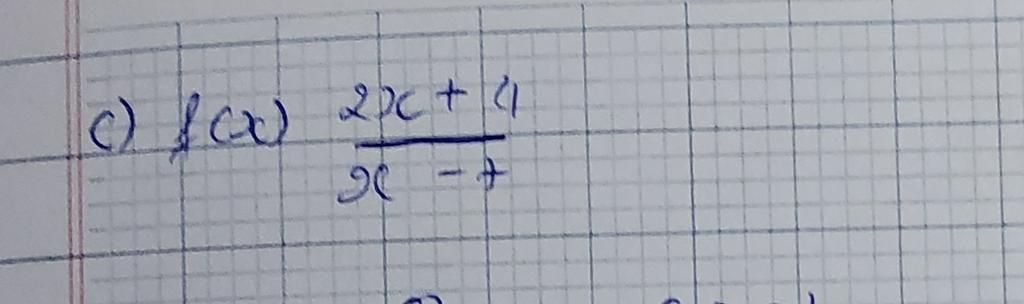 c) f(x) 2x + 4
x - 7